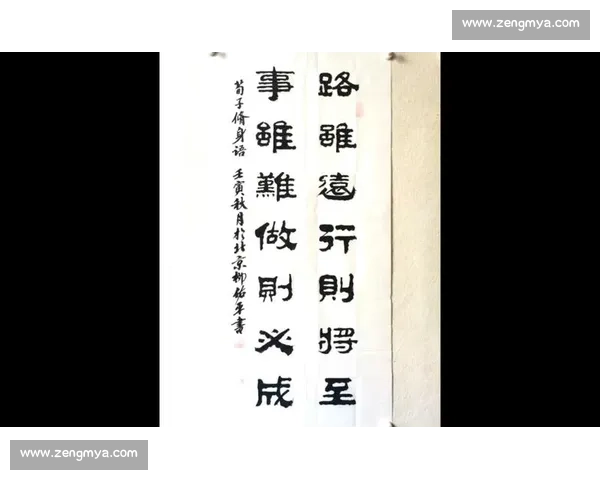 www.zengmya.com
路雖遠行則將至
事雖難做則必成
荀子脩身語 壬寅秋月於北京柳佑平書
www.zengmya.com